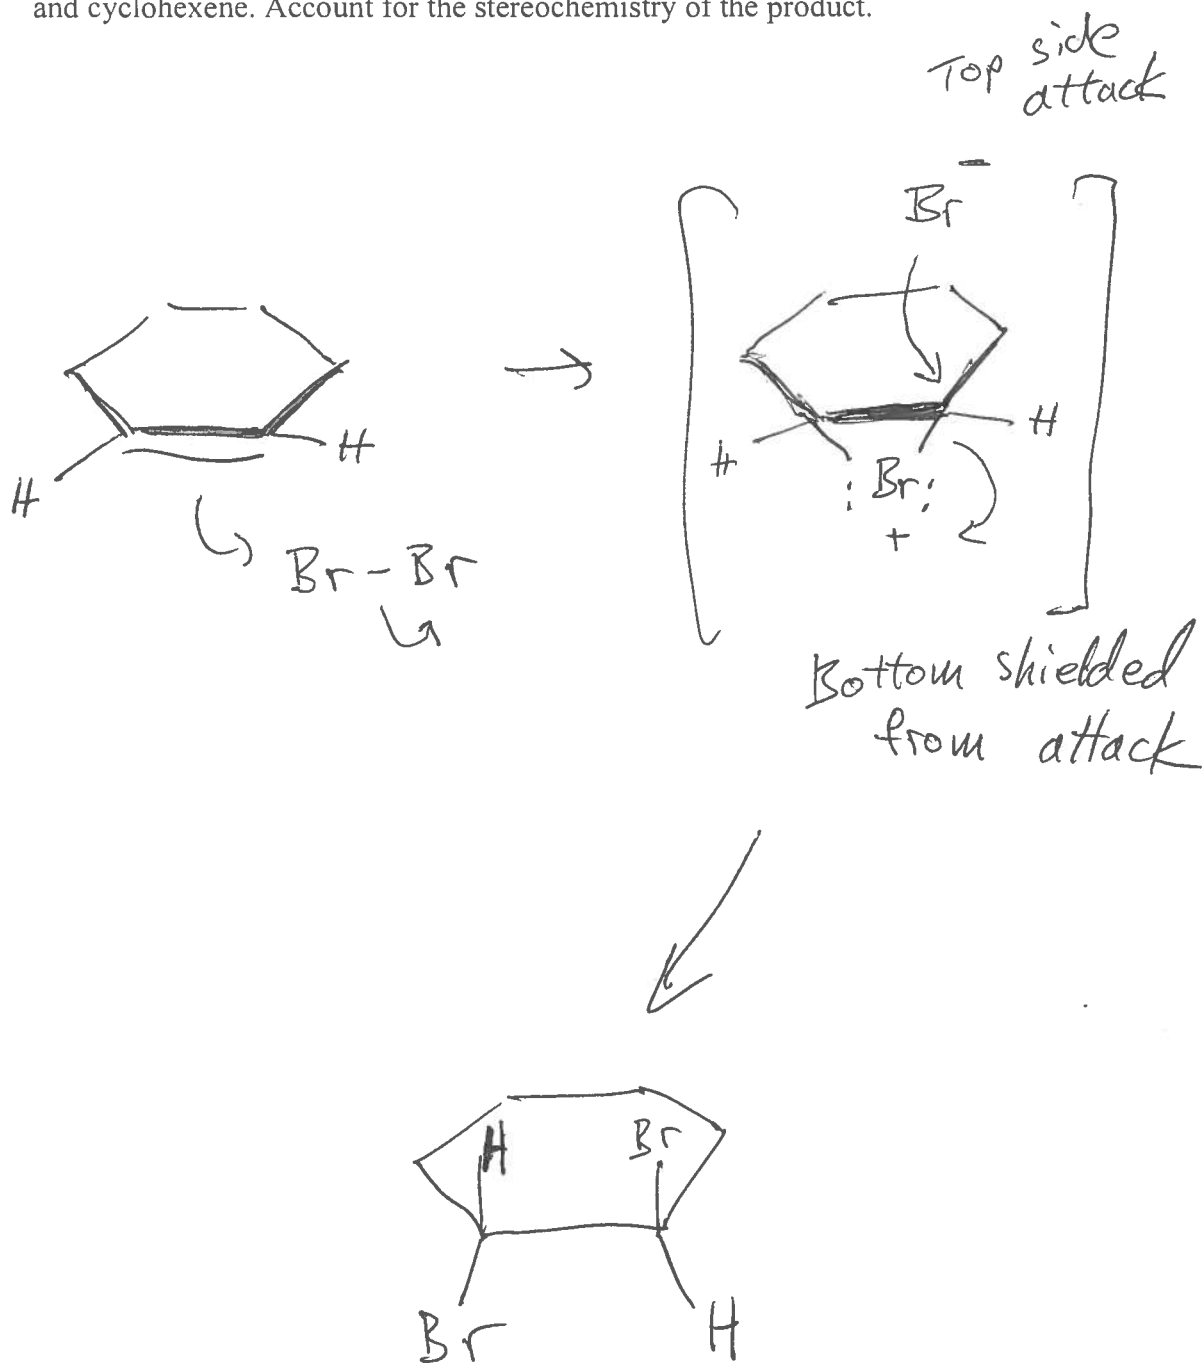 and cyclohexene. Account for the stereochemistry of the product.
Top side
attack
Br⁻
H
H
Br-Br
H
H
:Br:
+
Bottom shielded
from attack
H
Br
Br
H